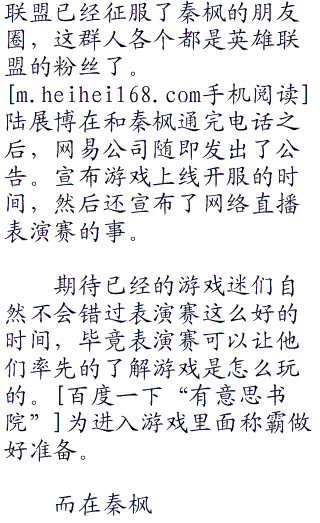 联盟已经征服了秦枫的朋友
圈，这群人各个都是英雄联
盟的粉丝了。
[m.heihei168.com手机阅读]
陆展博在和秦枫通完电话之
后，网易公司随即发出了公
告。宣布游戏上线开服的时
间，然后还宣布了网络直播
表演赛的事。
期待已经的游戏迷们自
然不会错过表演赛这么好的
时间，毕竟表演赛可以让他
们率先的了解游戏是怎么玩
的。[百度一下“有意思书
院”]为进入游戏里面称霸做
好准备。
而在秦枫